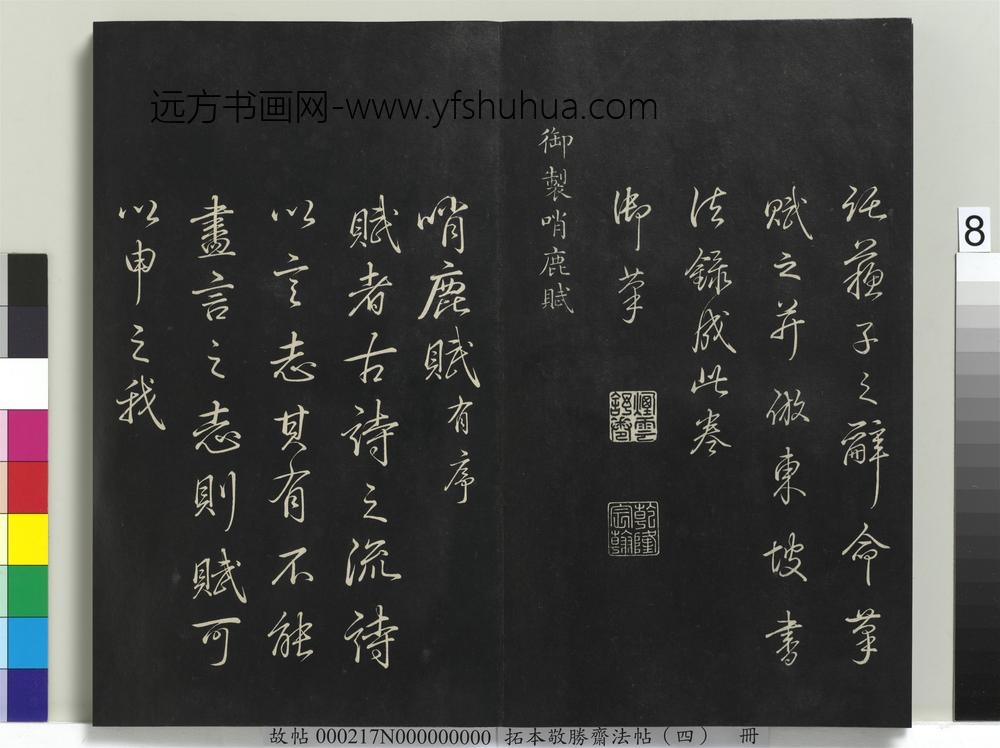 远方书画网-www.yfshuhua.com
託蘇子之辭命筆
賦之并倣東坡書
法錄成此卷
御筆
煙雲舒卷
乾隆宸翰
御製哨鹿賦
哨鹿賦有序
賦者古詩之流詩
以言志其有不能
盡言之志則賦可
以申之我
8
故帖 000217N000000000 拓本敬勝齋法帖（四） 冊